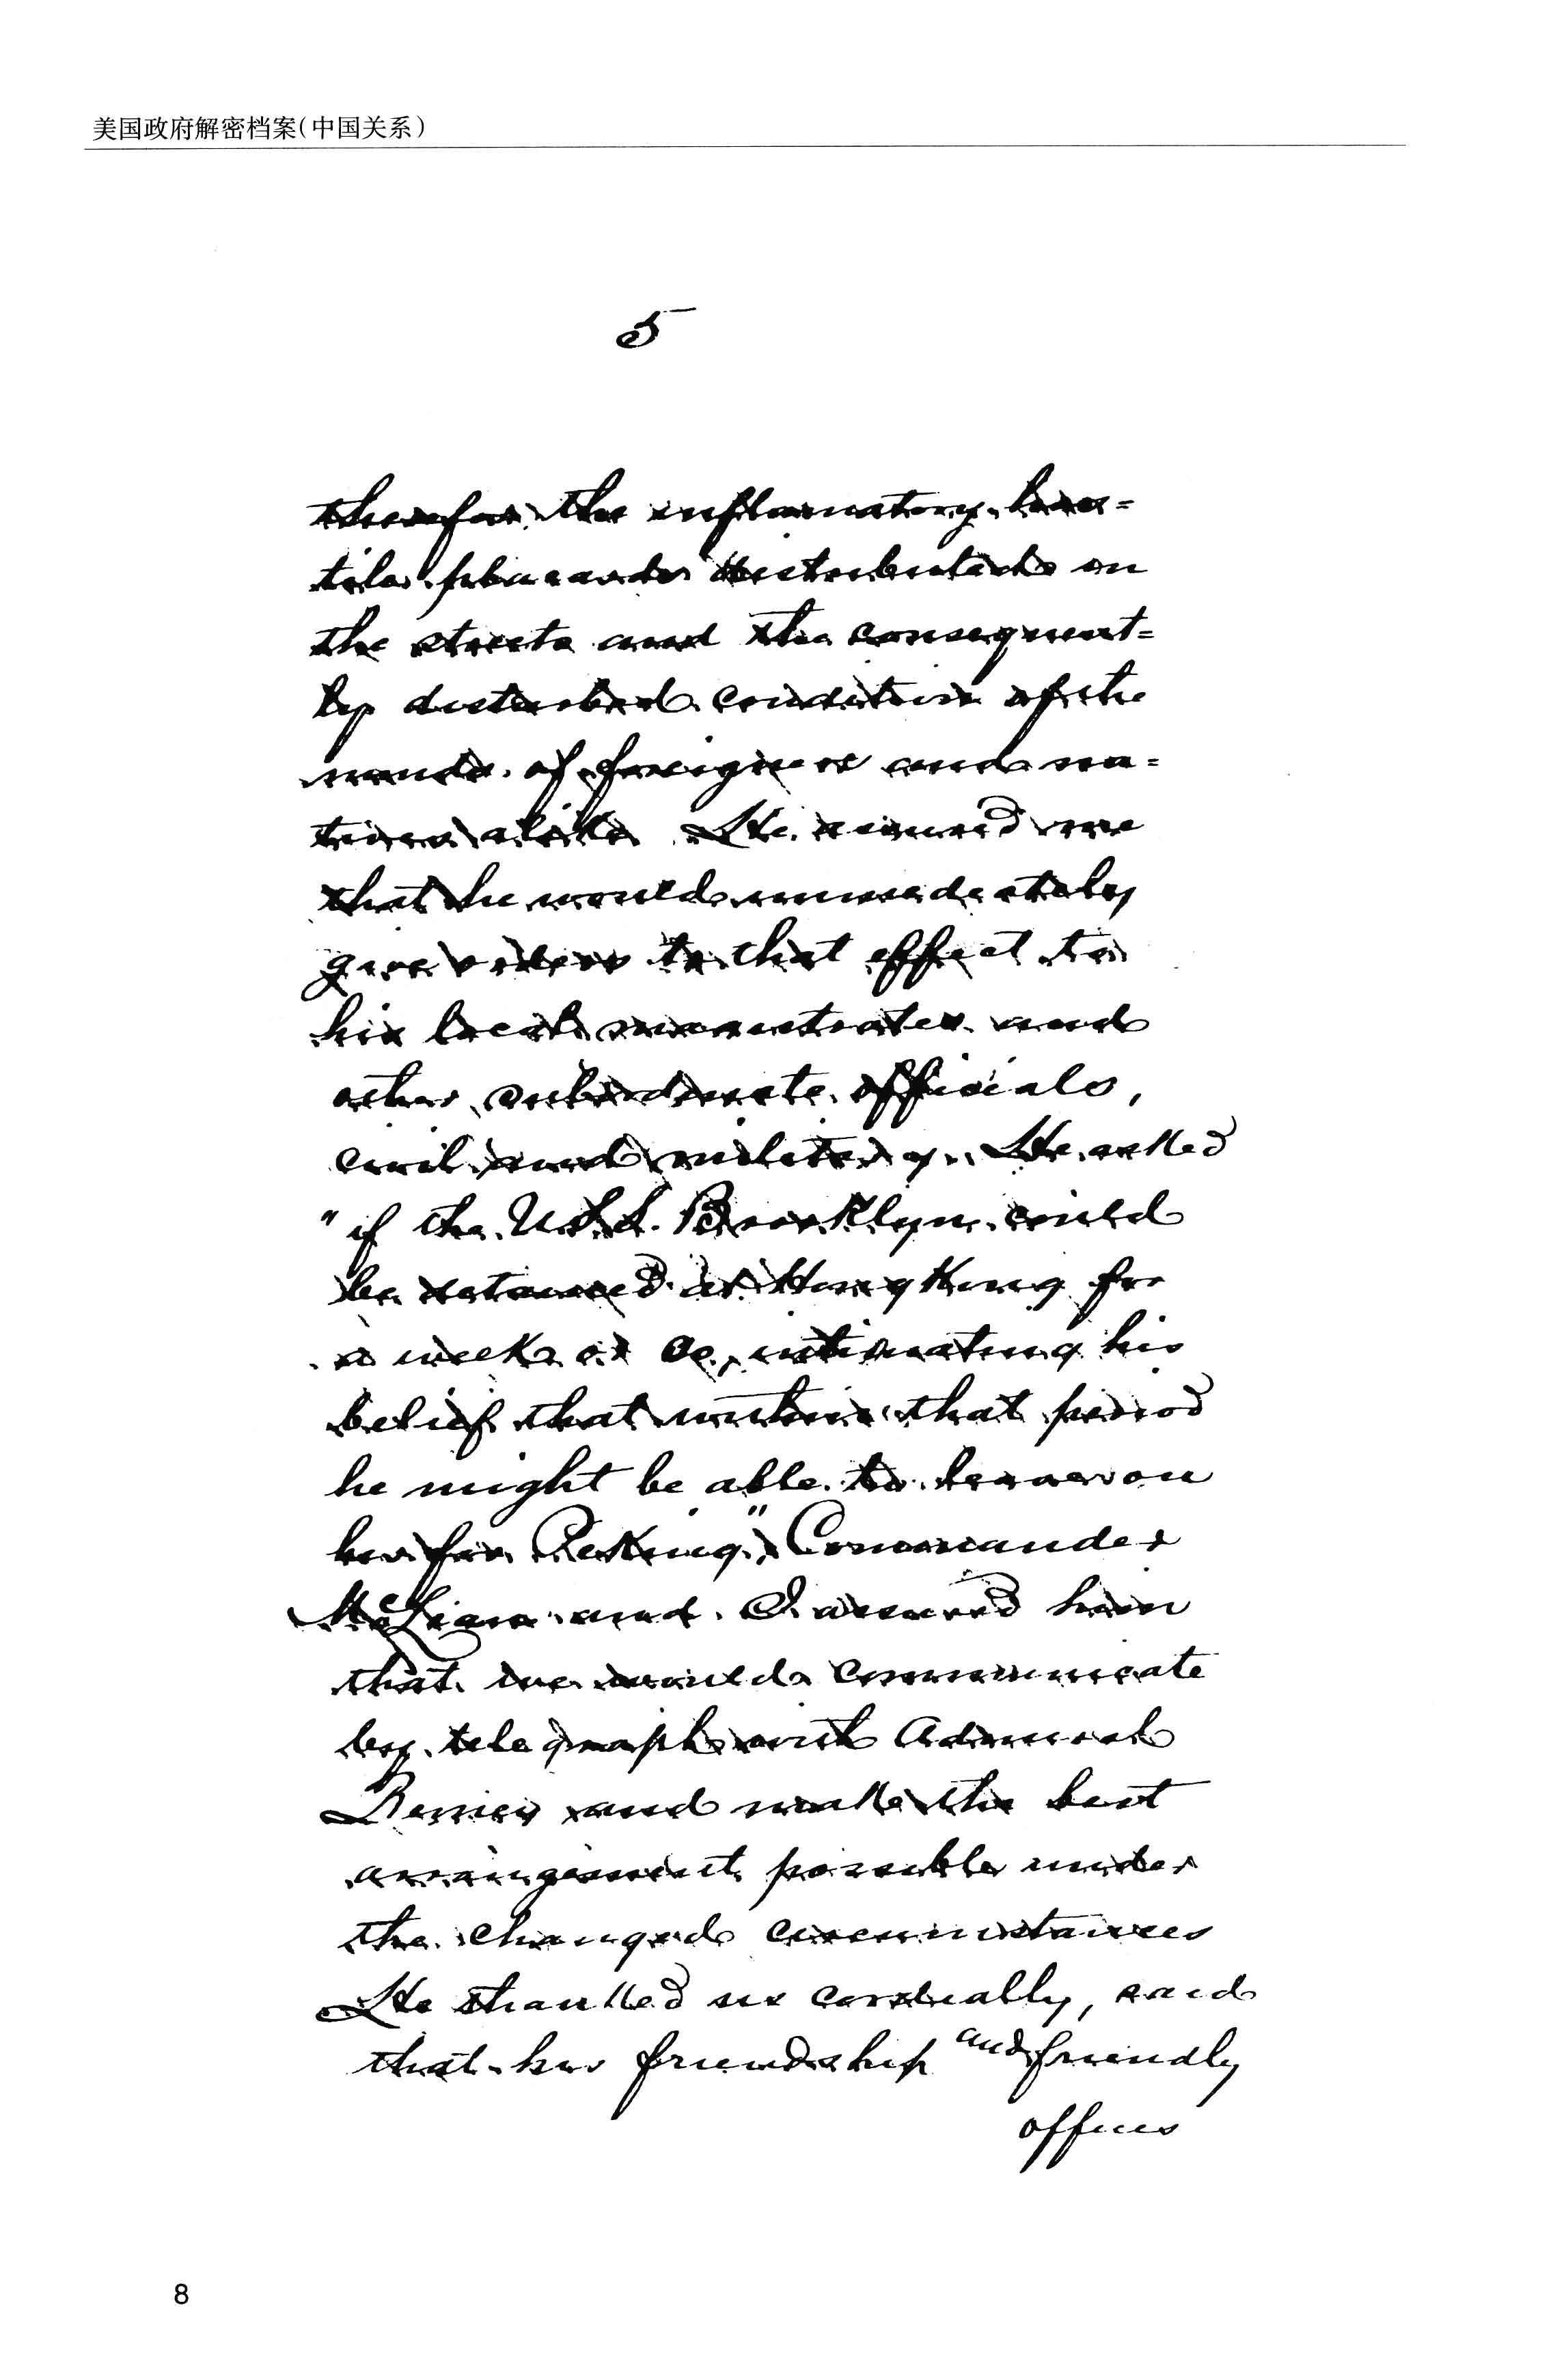 美国政府解密档案(中国关系)
5
therefor the inflamatory hos=
tile placards distributed on
the streets and the consequent=
ly disturbed condition of the
minds of foreigners and na=
tives alike He assured me
that he would immediately
give orders to that effect to
his local magistrates and
other subordinate officials,
civil and military. He asked
"if the U.S.S. Brooklyn could
be retained at Hong Kong for
a week or so, intimating his
belief that within that period
he might be able to leave on
her for Peking", Commander
McLean and I assured him
that we would communicate
by telegraph with Admiral
Remey and make the best
arrangement possible under
the changed circumstances
He thanked us cordially, said
that his friendship and friendly
offices
8